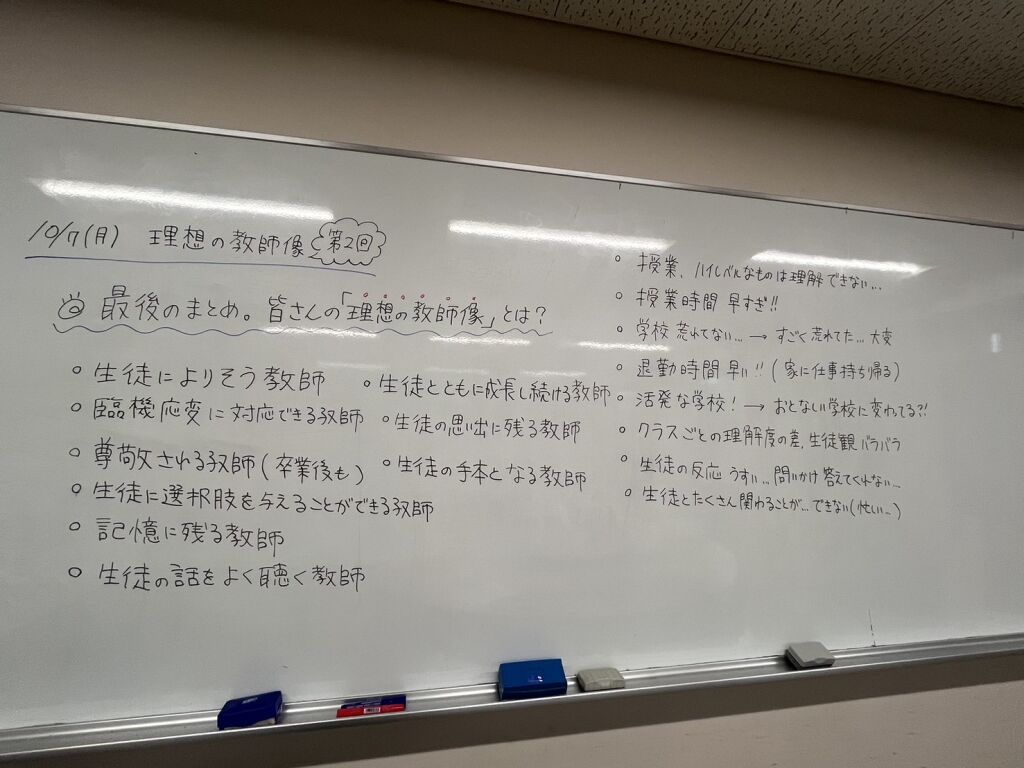 10/7(月) 理想の教師像 第2回
◎ 最後のまとめ。皆さんの「理想の教師像」とは?
○ 生徒によりそう教師
○ 臨機応変に対応できる教師
○ 尊敬される教師(卒業後も)
○ 生徒に選択肢を与えることができる教師
○ 記憶に残る教師
○ 生徒の話をよく聴く教師
○ 生徒とともに成長し続ける教師
○ 生徒の思い出に残る教師
○ 生徒の手本となる教師
○ 授業、ハイレベルなものは理解できない…
○ 授業時間 早すぎ!!
○ 学校 荒れてない… → すごく荒れてた… 大変
○ 退勤時間 早い!! (家に仕事持ち帰る)
○ 活発な学校! → おとない学校に変わってる?!
○ クラスごとの理解度の差、生徒観 バラバラ
○ 生徒の反応 うすい… 問いかけ 答えてくれない…
○ 生徒とたくさん関わることが…できない(忙しい…)